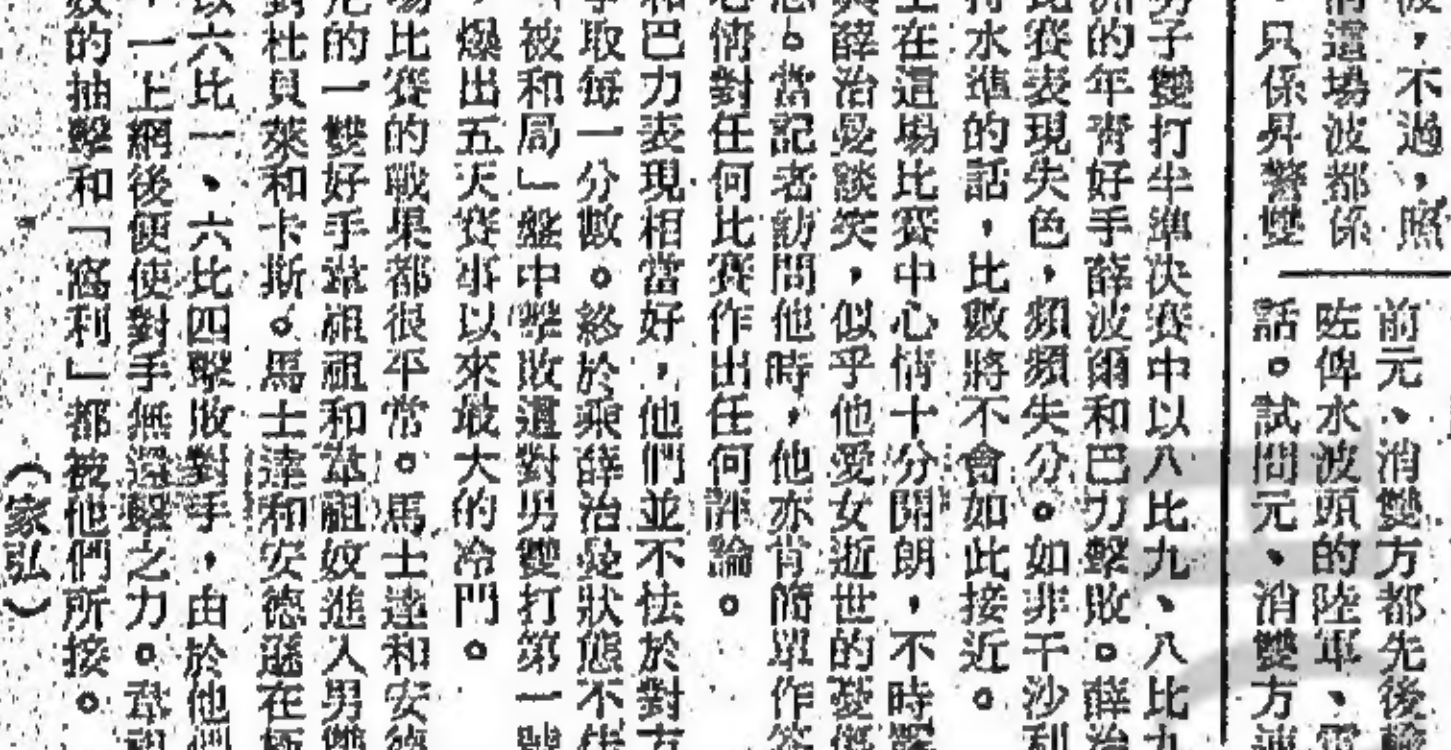 後，不過，照
消這場波都係
，只係昇警雙
前元、消雙方都先後
咗俾水波頭的陸軍、
話。試問元、消雙方
男子雙打半準決賽中以八比九、八比九
洲的年青好手薛波爾和巴力擊敗。薛治
比賽表現失色，頻頻失分。如非干沙利
持水準的話，比數將不會如此接近。
在這場比賽中心情十分開朗，不時
與薛治曼談笑，似乎他愛女逝世的憂
。當記者訪問他時，他亦肯簡單作答
心情對任何比賽作出任何評論。
和巴力表現相當好，他們並不怯於對方
爭取每一分數。終於乘薛治曼狀態不佳
「被和局」盤中擊敗這對男雙打第一號
，爆出五天賽事以來最大的冷門。
場比賽的戰果都很平常。馬士達和安德
尼的一雙好手韋祖祖和韋祖奴進入男雙
對杜貝萊和卡斯。馬士達和安德遜在極
以六比一、六比四擊敗對手，由於他們
，一上網後便使對手無還擊之力。韋祖
數的抽擊和「窩利」都被他們所接。
（家弘）